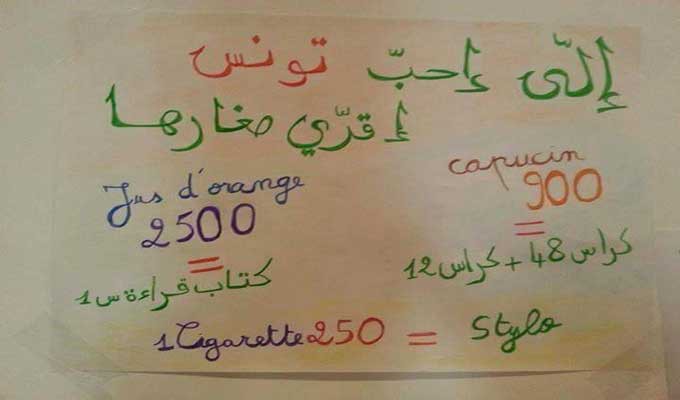 إلّي إحبّ تونس
إقرّي صغارها
capucin
900
=
كراس 48 + كراس 12
Jus d'orange
2500
=
كتاب قراءة س 1
1 Cigarette 250 = Stylo